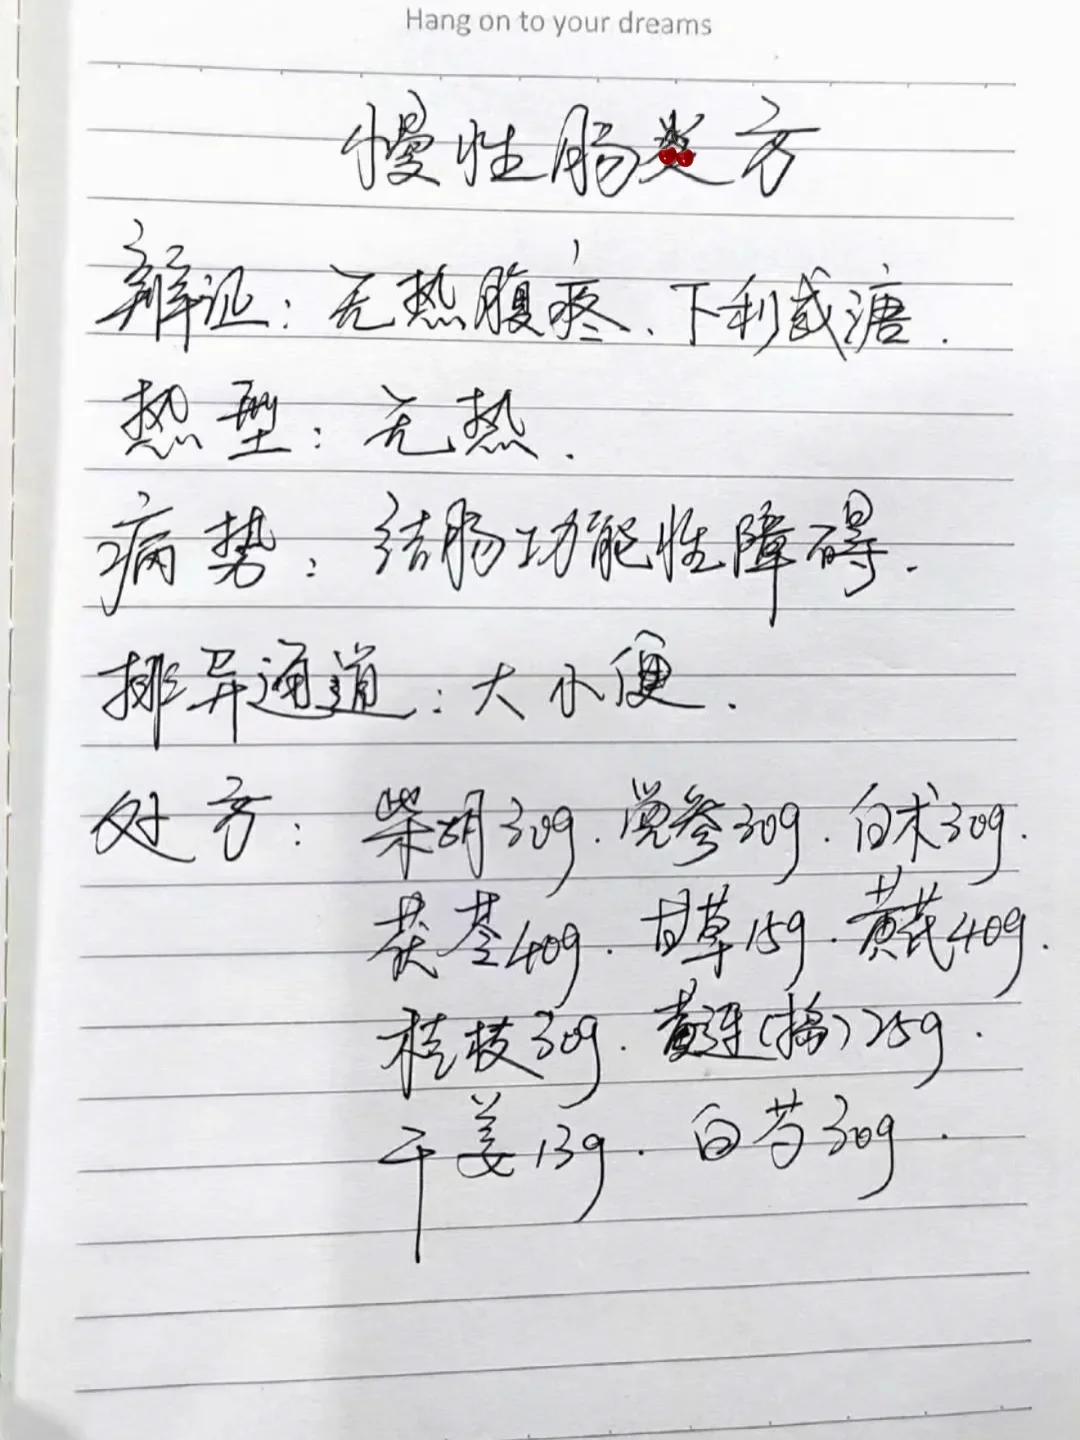 Hang on to your dreams
慢性肠炎方
辨证:无热腹疼、下利或溏.
热型:无热.
病势:结肠功能性障碍.
排异通道:大小便.
处方:柴胡30g.党参30g.白术30g.
茯苓40g.甘草15g.黄芪40g.
桂枝30g.黄连(捣)25g.
干姜13g.白芍30g.